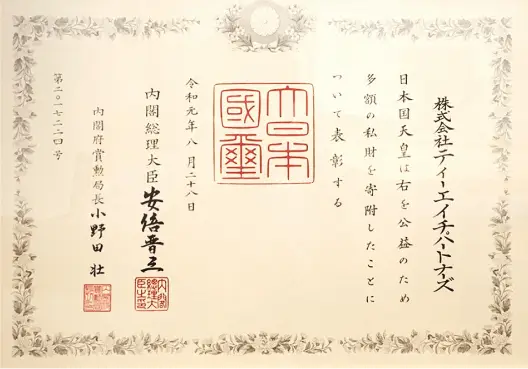 株式会社ティーエイチパートナーズ
日本国天皇は右を公益のため
多額の私財を寄附したことに
ついて表彰する
大日本
國璽
令和元年八月二十八日
内閣総理大臣 安倍晋三
内閣総理大臣之印
内閣府賞勲局長 小野田 壮
第二〇一七二二四号